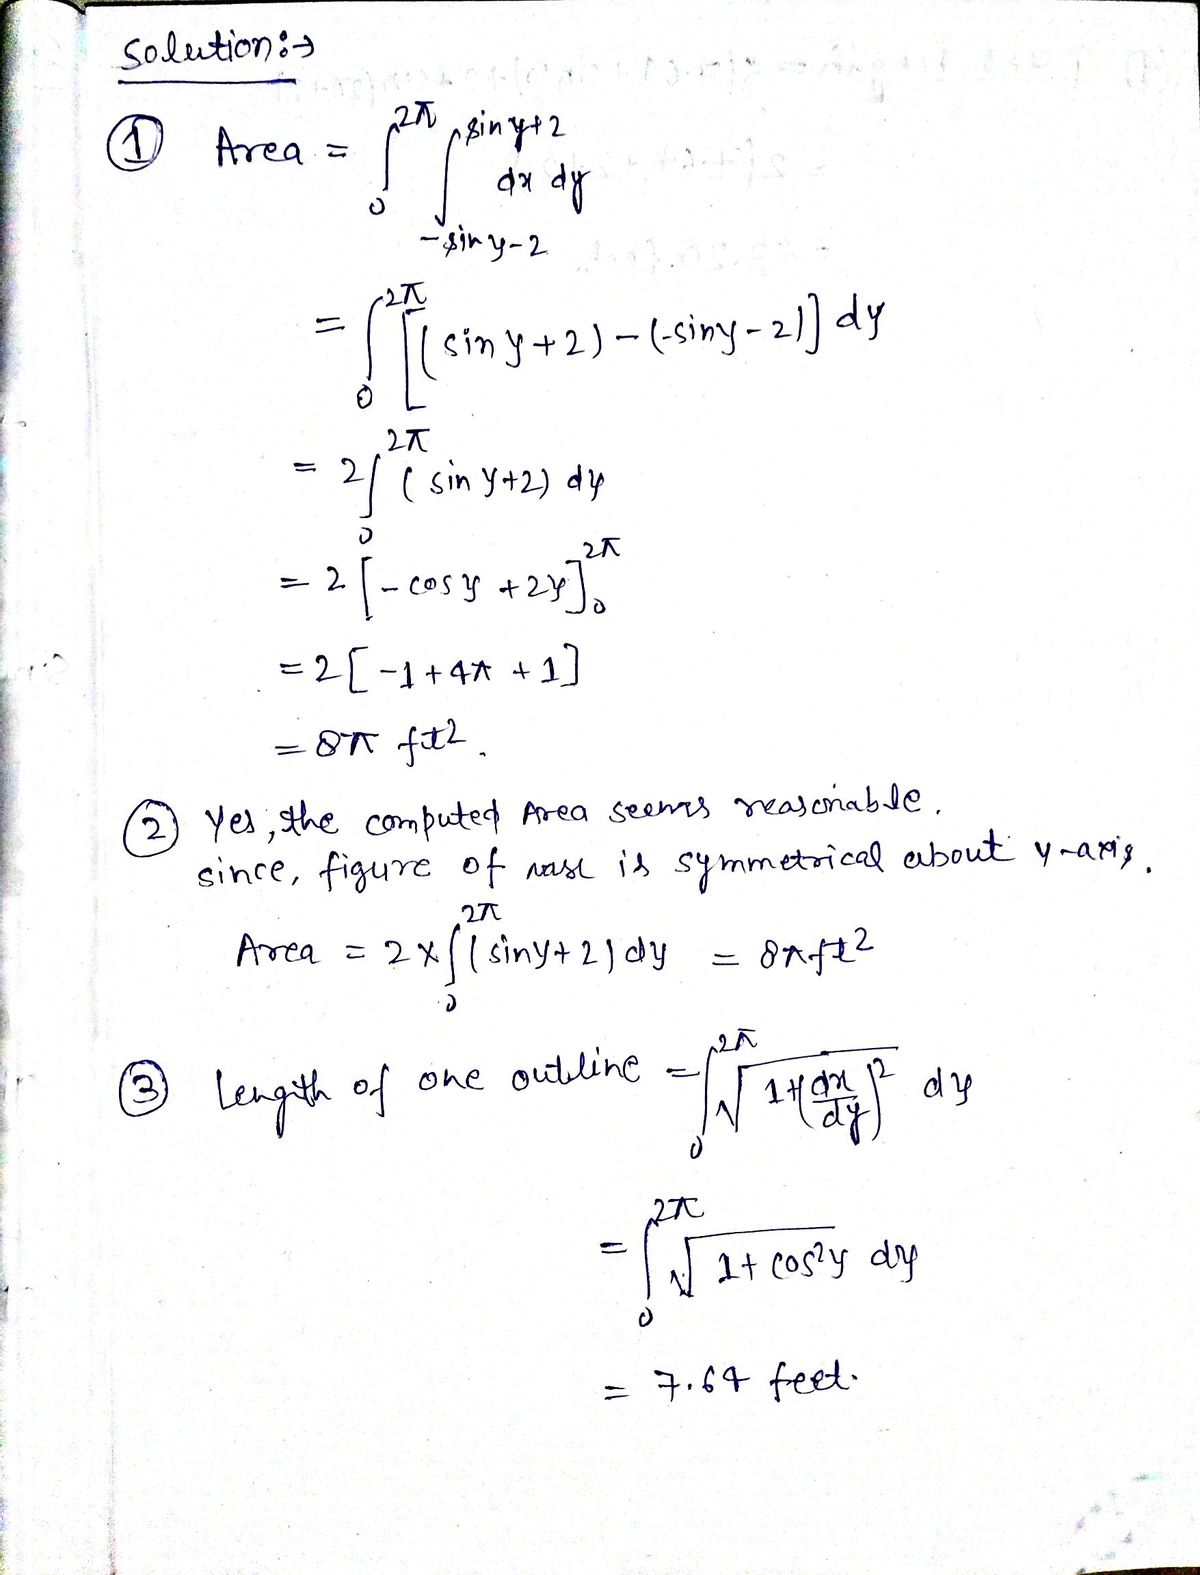 Solution:→
① Area = ∫₀^{2π} ∫_{-sin y-2}^{sin y+2} dx dy
= ∫₀^{2π} [(sin y+2) - (-sin y-2)] dy
= 2∫₀^{2π} (sin y+2) dy
= 2[-cos y +2y]₀^{2π}
= 2[-1+4π +1]
= 8π ft².
② Yes, the computed Area seems reasonable.
since, figure of vase is symmetrical about y-axis.
Area = 2×∫₀^{2π} (sin y+2) dy = 8π ft²
③ Length of one outline = ∫₀^{2π} √(1+(dx/dy)²) dy
= ∫₀^{2π} √(1+ cos²y) dy
= 7.64 feet.